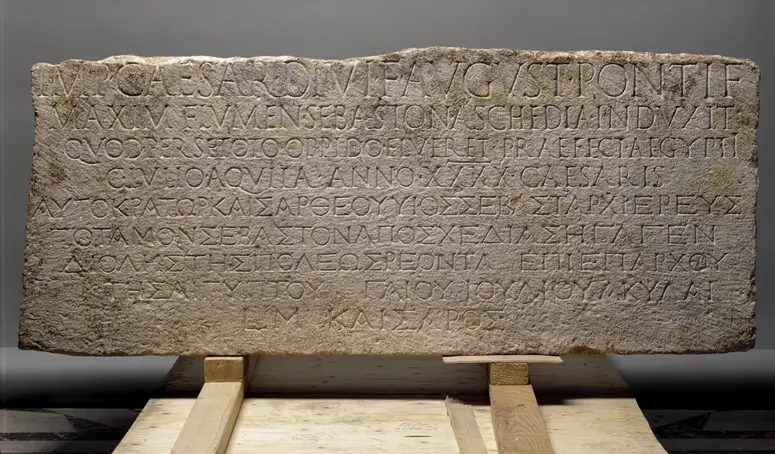 IMP CAESAR DIVI F AVGVST PONTIF
MAXIM FLVMEN SEBASTON A SCHEDIA INDVXIT
QVOD PER SE TOTO OPPIDO FLVERET PRAEFECT AEGYPTI
C IVLIO AQVILA ANNO XXXX CAESARIS
ΑΥΤΟΚΡΑΤΩΡ ΚΑΙΣΑΡ ΘΕΟΥ ΥΙΟΣ ΣΕΒΑΣΤ ΑΡΧΙΕΡΕΥΣ
ΠΟΤΑΜΟΝ ΣΕΒΑΣΤΟΝ ΑΠΟ ΣΧΕΔΙΑΣ ΗΓΑΓΕΝ
ΔΙ ΟΛΗΣ ΤΗΣ ΠΟΛΕΩΣ ΡΕΟΝΤΑ ΕΠΙ ΕΠΑΡΧΟΥ
ΤΗΣ ΑΙΓΥΠΤΟΥ ΓΑΙΟΥ ΙΟΥΛΙΟΥ ΑΚΥΛΑ
L Μ ΚΑΙΣΑΡΟΣ